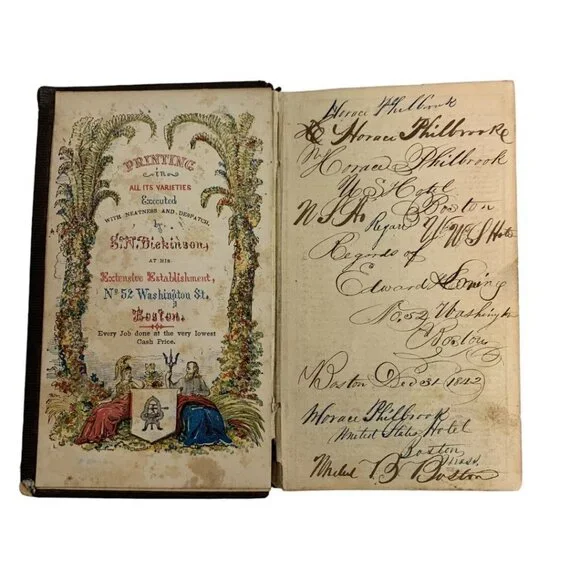 PRINTING
IN
ALL ITS VARIETIES
Executed
WITH NEATNESS AND DESPATCH,
by
S. N. Dickinson,
AT HIS
Extensive Establishment,
No 52 Washington St.
Boston.
Every Job done at the very lowest
Cash Price.
Horace Philbrook
Horace Philbrooke
Horace Philbrook
U S Hotel
Boston
Regard
Regards of
Edward
No. 52 Washington
Boston
Boston Dec 31 1842
Horace Philbrook
United States Hotel
Boston
Mass.
B Boston